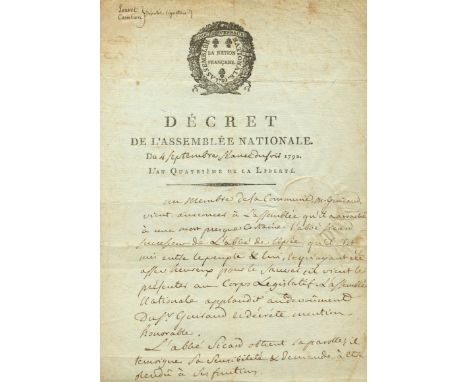 Louvet
Cambon
ASSEMBLÉE NATIONALE
LA NATION
FRANÇAISE
DÉCRET
DE L'ASSEMBLÉE NATIONALE.
Du 4 septembre séance du soir 1792.
L'AN QUATRIÈME DE LA LIBERTÉ.
un Membre de la Commune, M. Guiraud
vient annoncer à l'assemblée qu'il a arraché
à une mort presque certaine l'abbé Sicard
successeur de L'abbé de l'épée, qu'il s'est
mis entre le peuple & lui, & qu'ayant été
assez heureux pour le Sauver, il vient le
présenter au Corps Législatif. L'assemblée
Nationale applaudit au dévoûment
Du Sr. Guiraud et décrète mention
honorable.
L'abbé Sicard obtient la parolle; il
temoigne sa Sensibilité & demande à être
rendu à ses fonctions